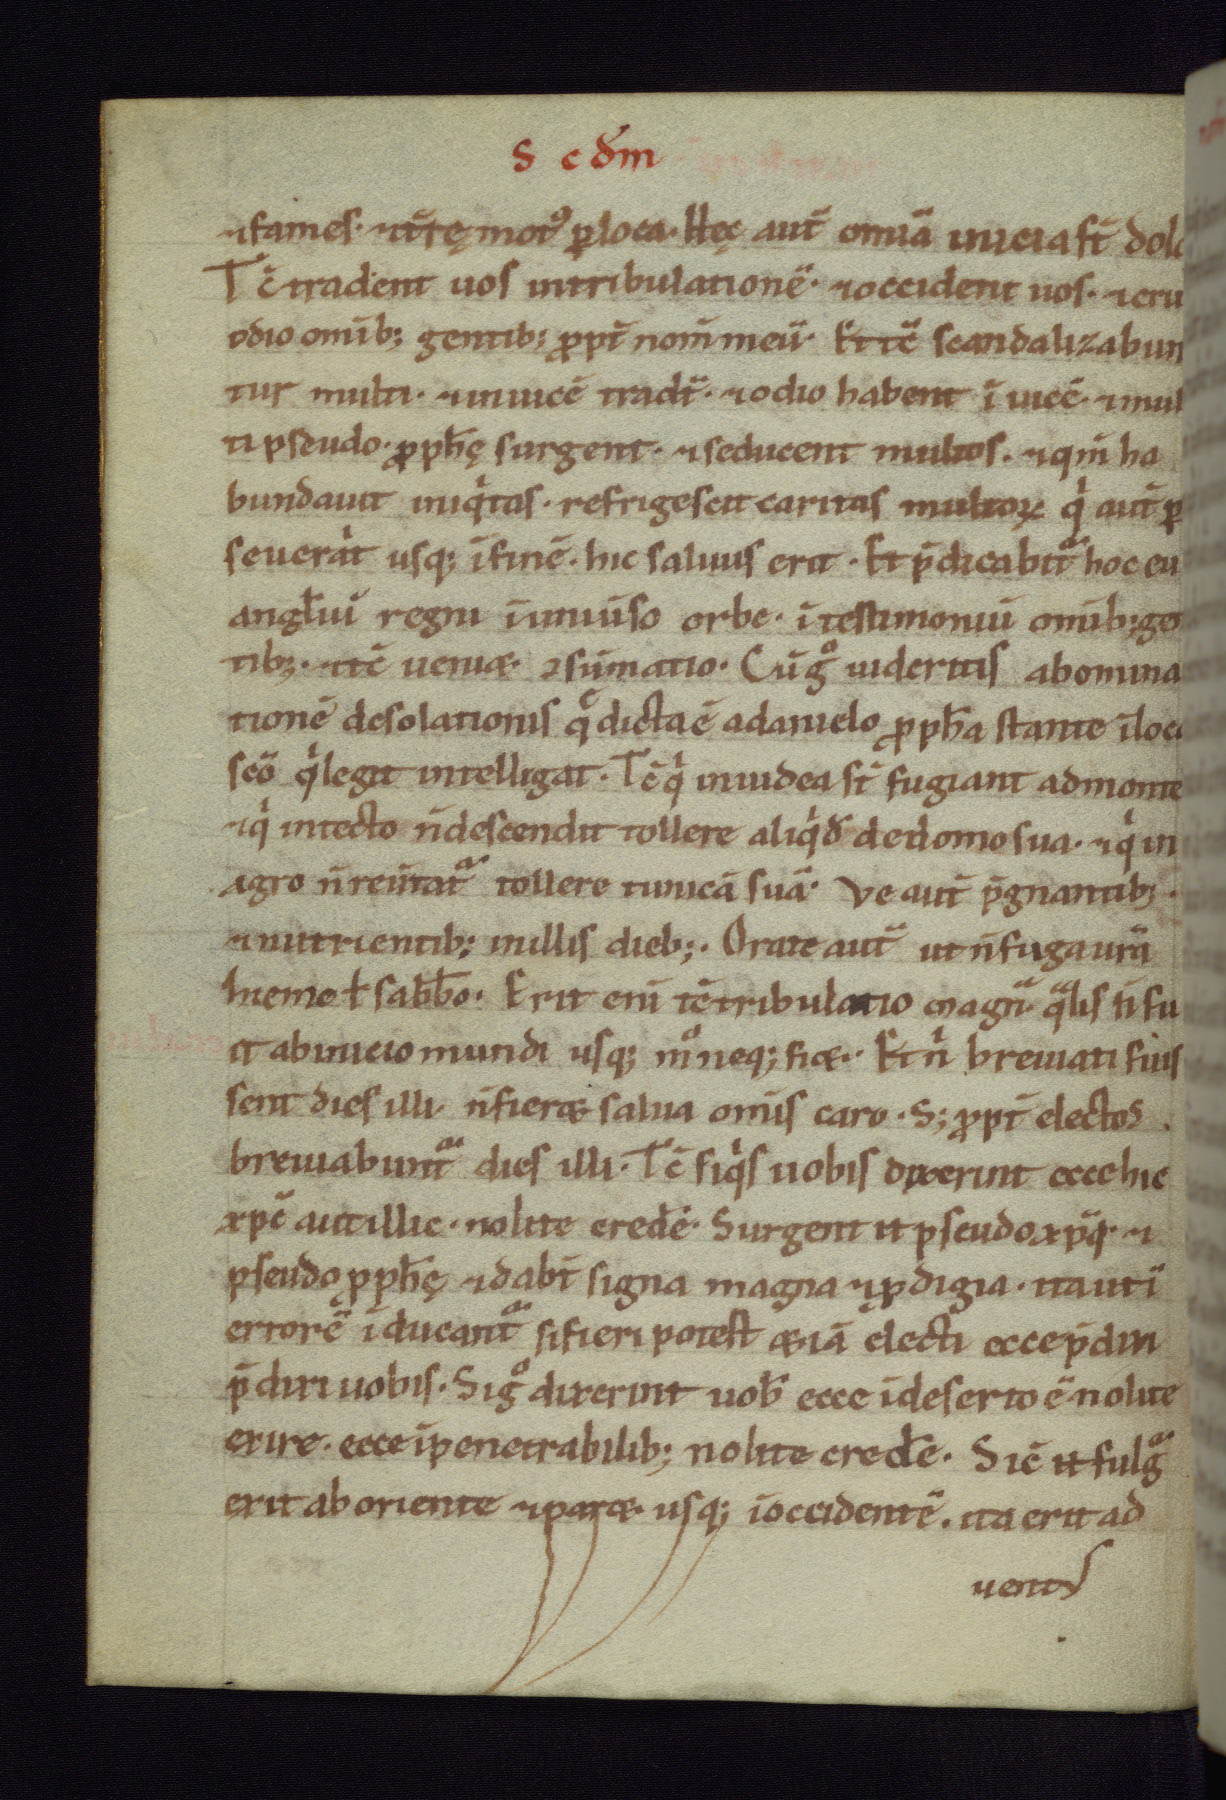 S c dm̄
⁊ fames · ⁊ t̄rę mot᷒ ꝑ loca · Hęc aut̄ omīa inicia st̄ dolo
Tc̄ tradent uos in tribulationē · ⁊ occident uos · ⁊ eri
odio omīb; gentib; ꝓpt̄ nom̄ meū · Et tc̄ scandalizabun
tur multi · ⁊ inuicē tradt̄ · ⁊ odio habent ī uicē · ⁊ mul
ti pseudo · ꝓph̄ę surgent · ⁊ seducent multos · ⁊ qm̄ ha
bundauit iniqͥtas · refrigescit caritas multoꝝ qͥ aut̄ ꝑ
seuerāt usq; ī finē · hic saluus erit · Et p̄dicabit᷑ hoc eu
angl̄iū regni ī uniu̅so orbe · ī testimoniū omīb; gen
tib; · ⁊ tc̄ ueniet · ꝯsūmatio · Cū gͦ uideritis abomina
tionē desolationis qͨ dicta ē a danielo ꝓph̄a stante ī loco
scō qͥ legit intelligat · Tc̄ qͥ in iudea st̄ fugiant ad monte
⁊ qͥ in tecto n̄ descendit tollere aliqͥd de domo sua · ⁊ qͥ in
agro n̄ reu̅tat᷑ tollere tunicā suā · Ve aut̄ p̄gnantib; ·
⁊ nutrientib; in illis dieb; · Orate aut̄ ut n̄ fuga ur̄a
hieme ł sabb̄o · Erit eni tc̄ tribulatio magnᷓ qᷓlis n̄ fu
it ab inicio mundi usq; mͦ neq; fiet · Et nͥ breuiati fuis
sent dies illi n̄ fieret salua omīs caro · S; ꝓpt̄ electos ·
breuiabunt᷑ dies illi · Tc̄ si qͥs uobis dixerint ecce hic
xp̄c aut illic · nolite credē · Surgent n̄ pseudo xp̄i · ⁊
pseudo ꝓph̄ę ⁊ dabt̄ signa magna ⁊ ꝓdigia · ita ut ī
errorē ī ducant᷑ si fieri potest etiā electi ecce p̄dixi
p̄ dixi uobis · Si gͦ dixerint uob̄ ecce ī deserto ē nolite
exire · ecce ī penetrabilib; nolite credē · Sic̄ n̄ fulg᷑
exit ab oriente ⁊ paret usq; ī occidentē · ita erit ad
uentꝰ